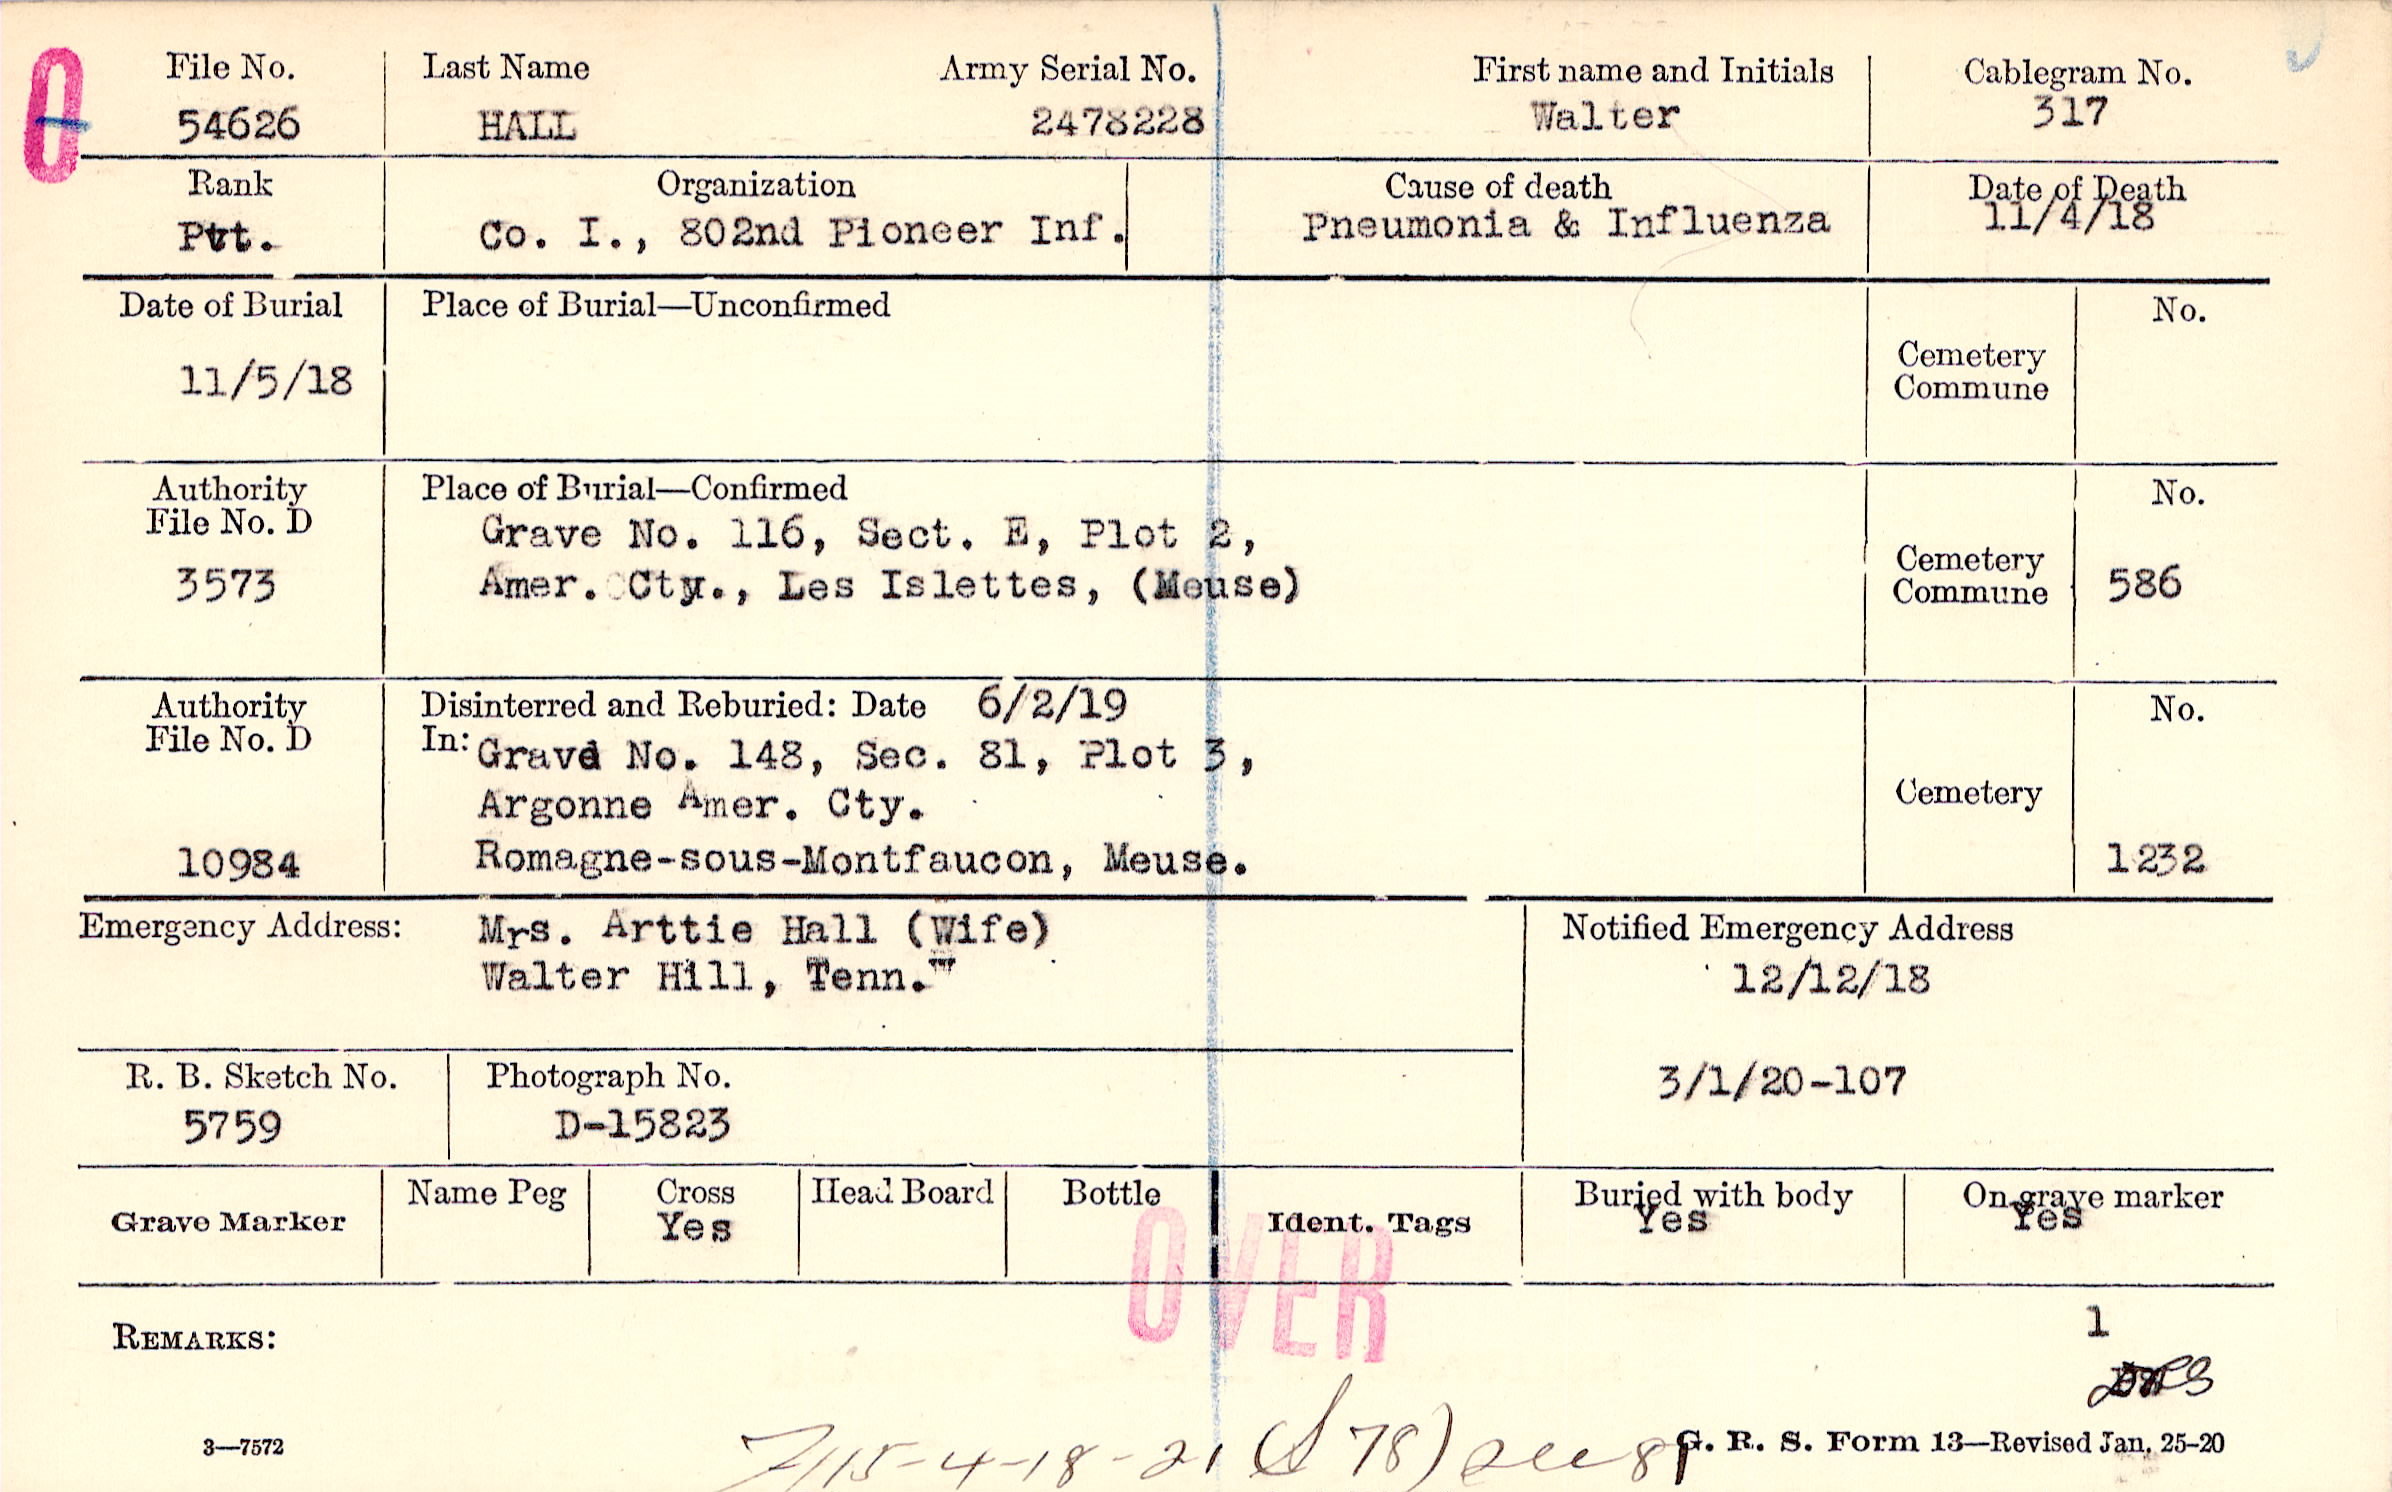 File No. Last Name Army Serial No. First name and Initials Cablegram No.
54626 HALL 2478228 Walter 317
Rank Organization Cause of death Date of Death
Pvt. Co. I., 802nd Pioneer Inf. Pneumonia & Influenza 11/4/18
Date of Burial Place of Burial—Unconfirmed No.
11/5/18
Cemetery
Commune
Authority Place of Burial—Confirmed No.
File No. D
3573
Grave No. 116, Sect. E, Plot 2,
Amer. Cty., Les Islettes, (Meuse)
Cemetery
Commune 586
Authority Disinterred and Reburied: Date 6/2/19 No.
File No. D In: Grave No. 148, Sec. 81, Plot 3,
Argonne Amer. Cty. Cemetery
10984 Romagne-sous-Montfaucon, Meuse. 1232
Emergency Address: Mrs. Arttie Hall (Wife)
Walter Hill, Tenn."
Notified Emergency Address
12/12/18
3/1/20-107
R. B. Sketch No. Photograph No.
5759 D-15823
Grave Marker Name Peg Cross Head Board Bottle Ident. Tags Buried with body On grave marker
Yes Yes Yes
OVER
1
REMARKS:
3—7572 15-4-18-21 (S 78) G. R. S. Form 13—Revised Jan. 25-20